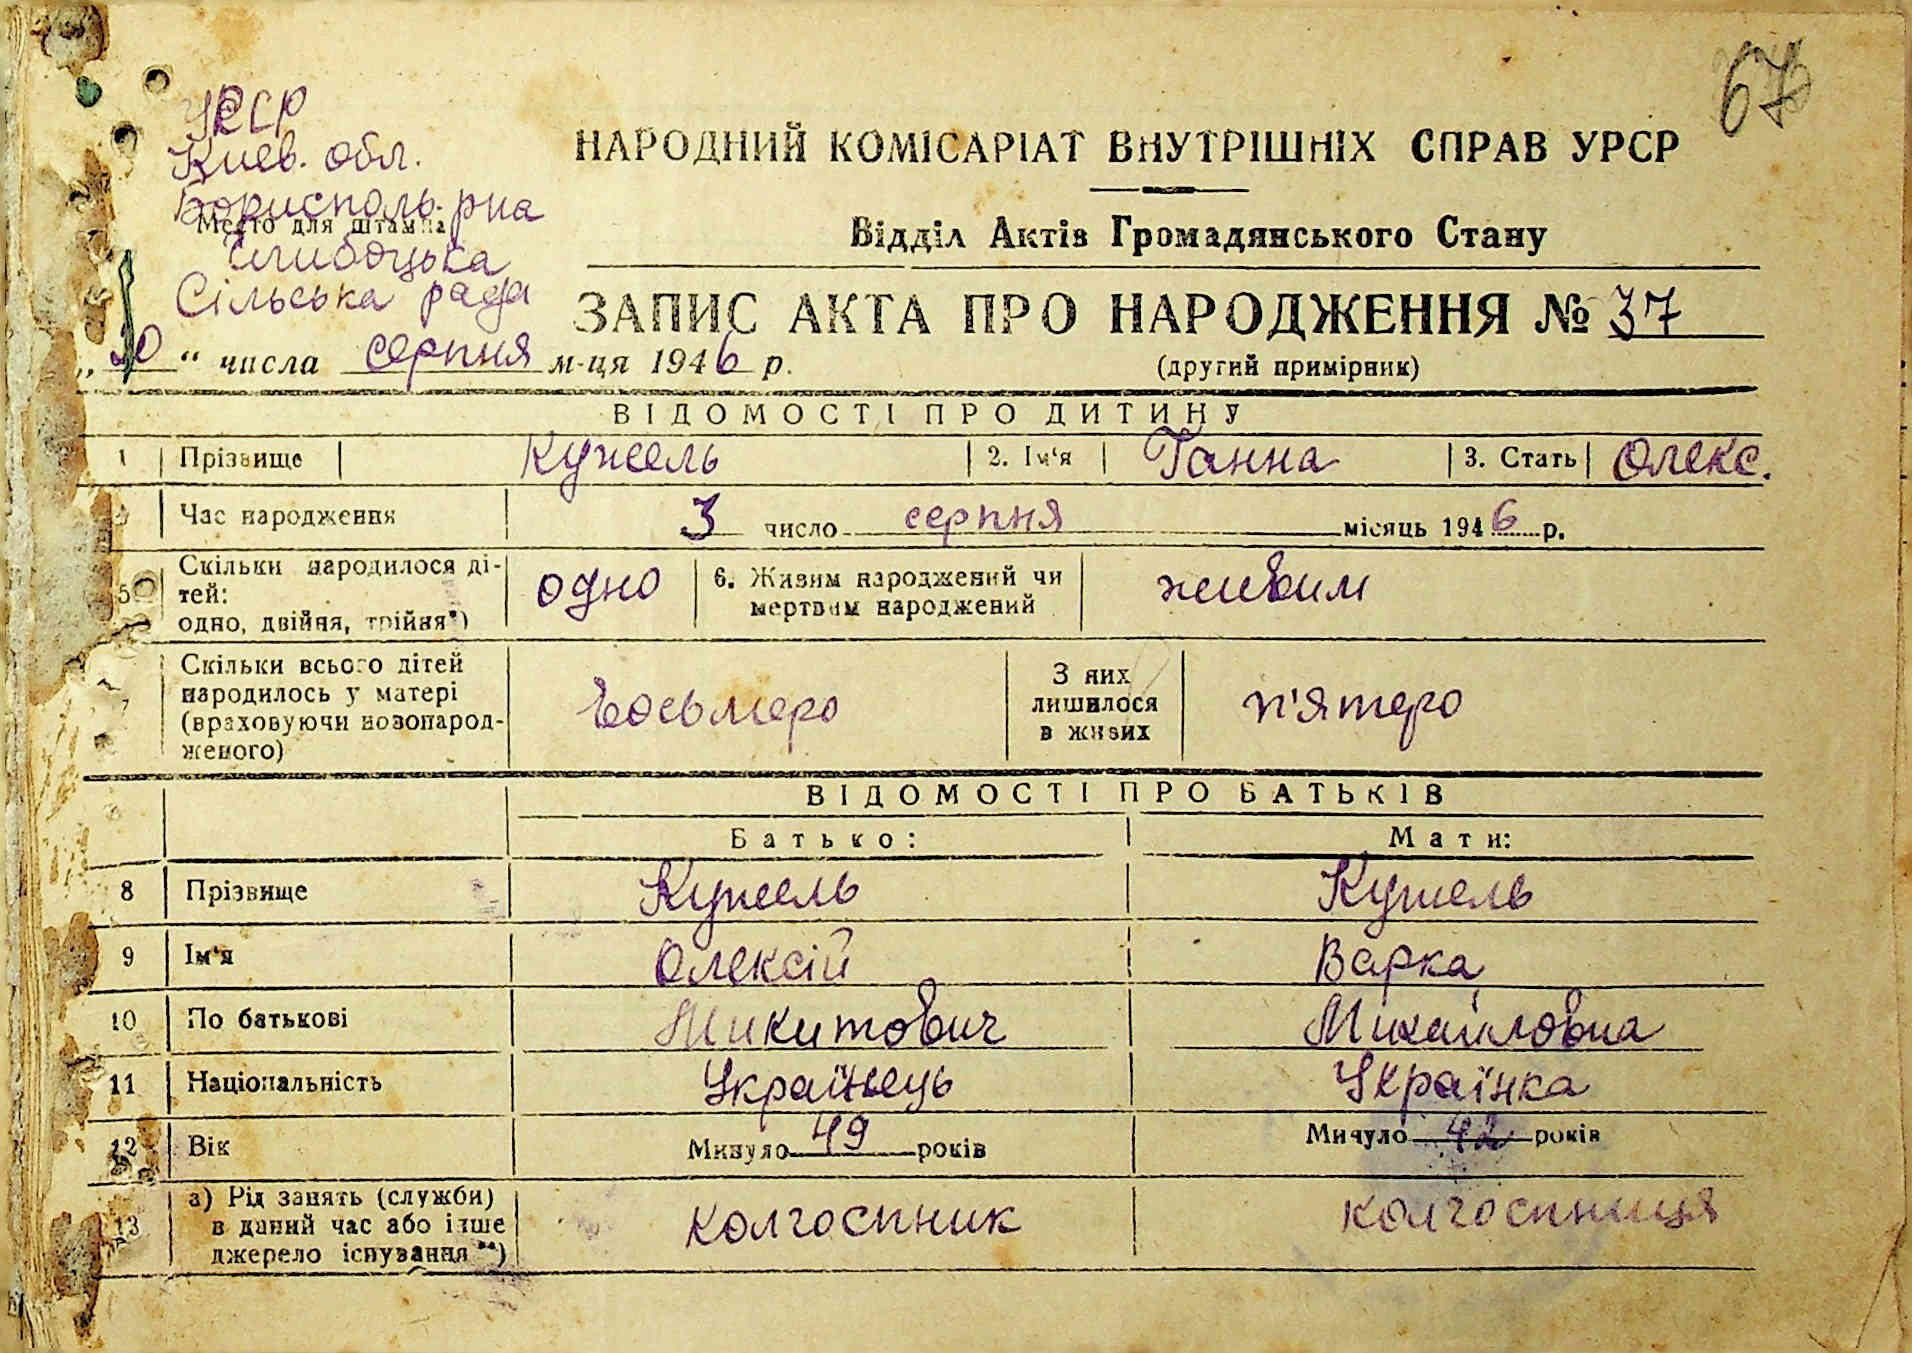 67
УРСР
Киев. обл.
Бориспольрна
Место для штампа
Глибоцька
Сільська рада
„30“ числа серпня м-ця 1946 р.
НАРОДНИЙ КОМІСАРІАТ ВНУТРІШНІХ СПРАВ УРСР
Відділ Актів Громадянського Стану
ЗАПИС АКТА ПРО НАРОДЖЕННЯ № 37
(другий примірник)
ВІДОМОСТІ ПРО ДИТИНУ
1 Прізвище Кужель 2. Ім‘я Ганна 3. Стать Олекс.
Час народження 3 число серпня місяць 1946 р.
5 Скільки народилося ді-
тей:
одно, двійня, трійня*)
одно
6. Живим народжений чи
мертвим народжений
живим
7 Скільки всього дітей
народилось у матері
(враховуючи новонарод-
женого)
Восьмеро
З них
лишилося
в живих
п'ятеро
ВІДОМОСТІ ПРО БАТЬКІВ
Батько: Мати:
8 Прізвище Кужель Кужель
9 Ім‘я Олексій Варка
10 По батькові Микитович Михайловна
11 Національність Українець Українка
12 Вік Минуло 49 років Минуло 42 років
13 а) Рід занять (служби)
в даний час або інше
джерело існування **)
колгоспник колгоспниця